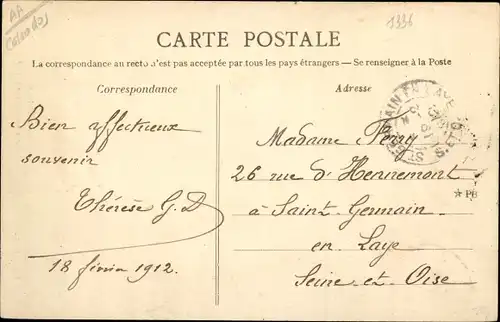 AP
Calvados
1336
CARTE POSTALE
La correspondance au recto n'est pas acceptée par tous les pays étrangers — Se renseigner à la Poste
Correspondance
Adresse
Bien affectueux
souvenir
Thérèse G. D
18 février 1912.
Madame
26 rue d'Hennemont
à Saint Germain
en Laye
Seine-et-Oise